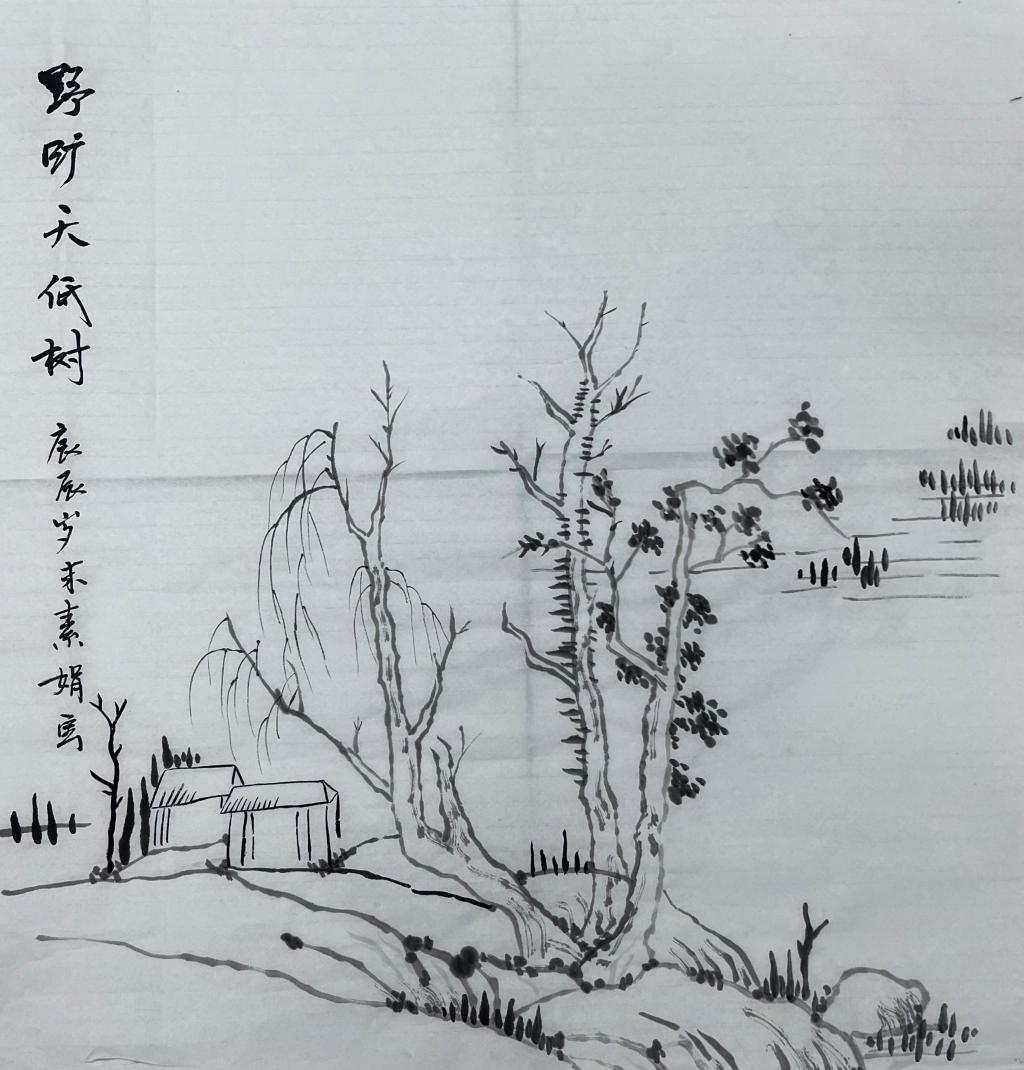 野旷天低树 庚辰岁末素娟写